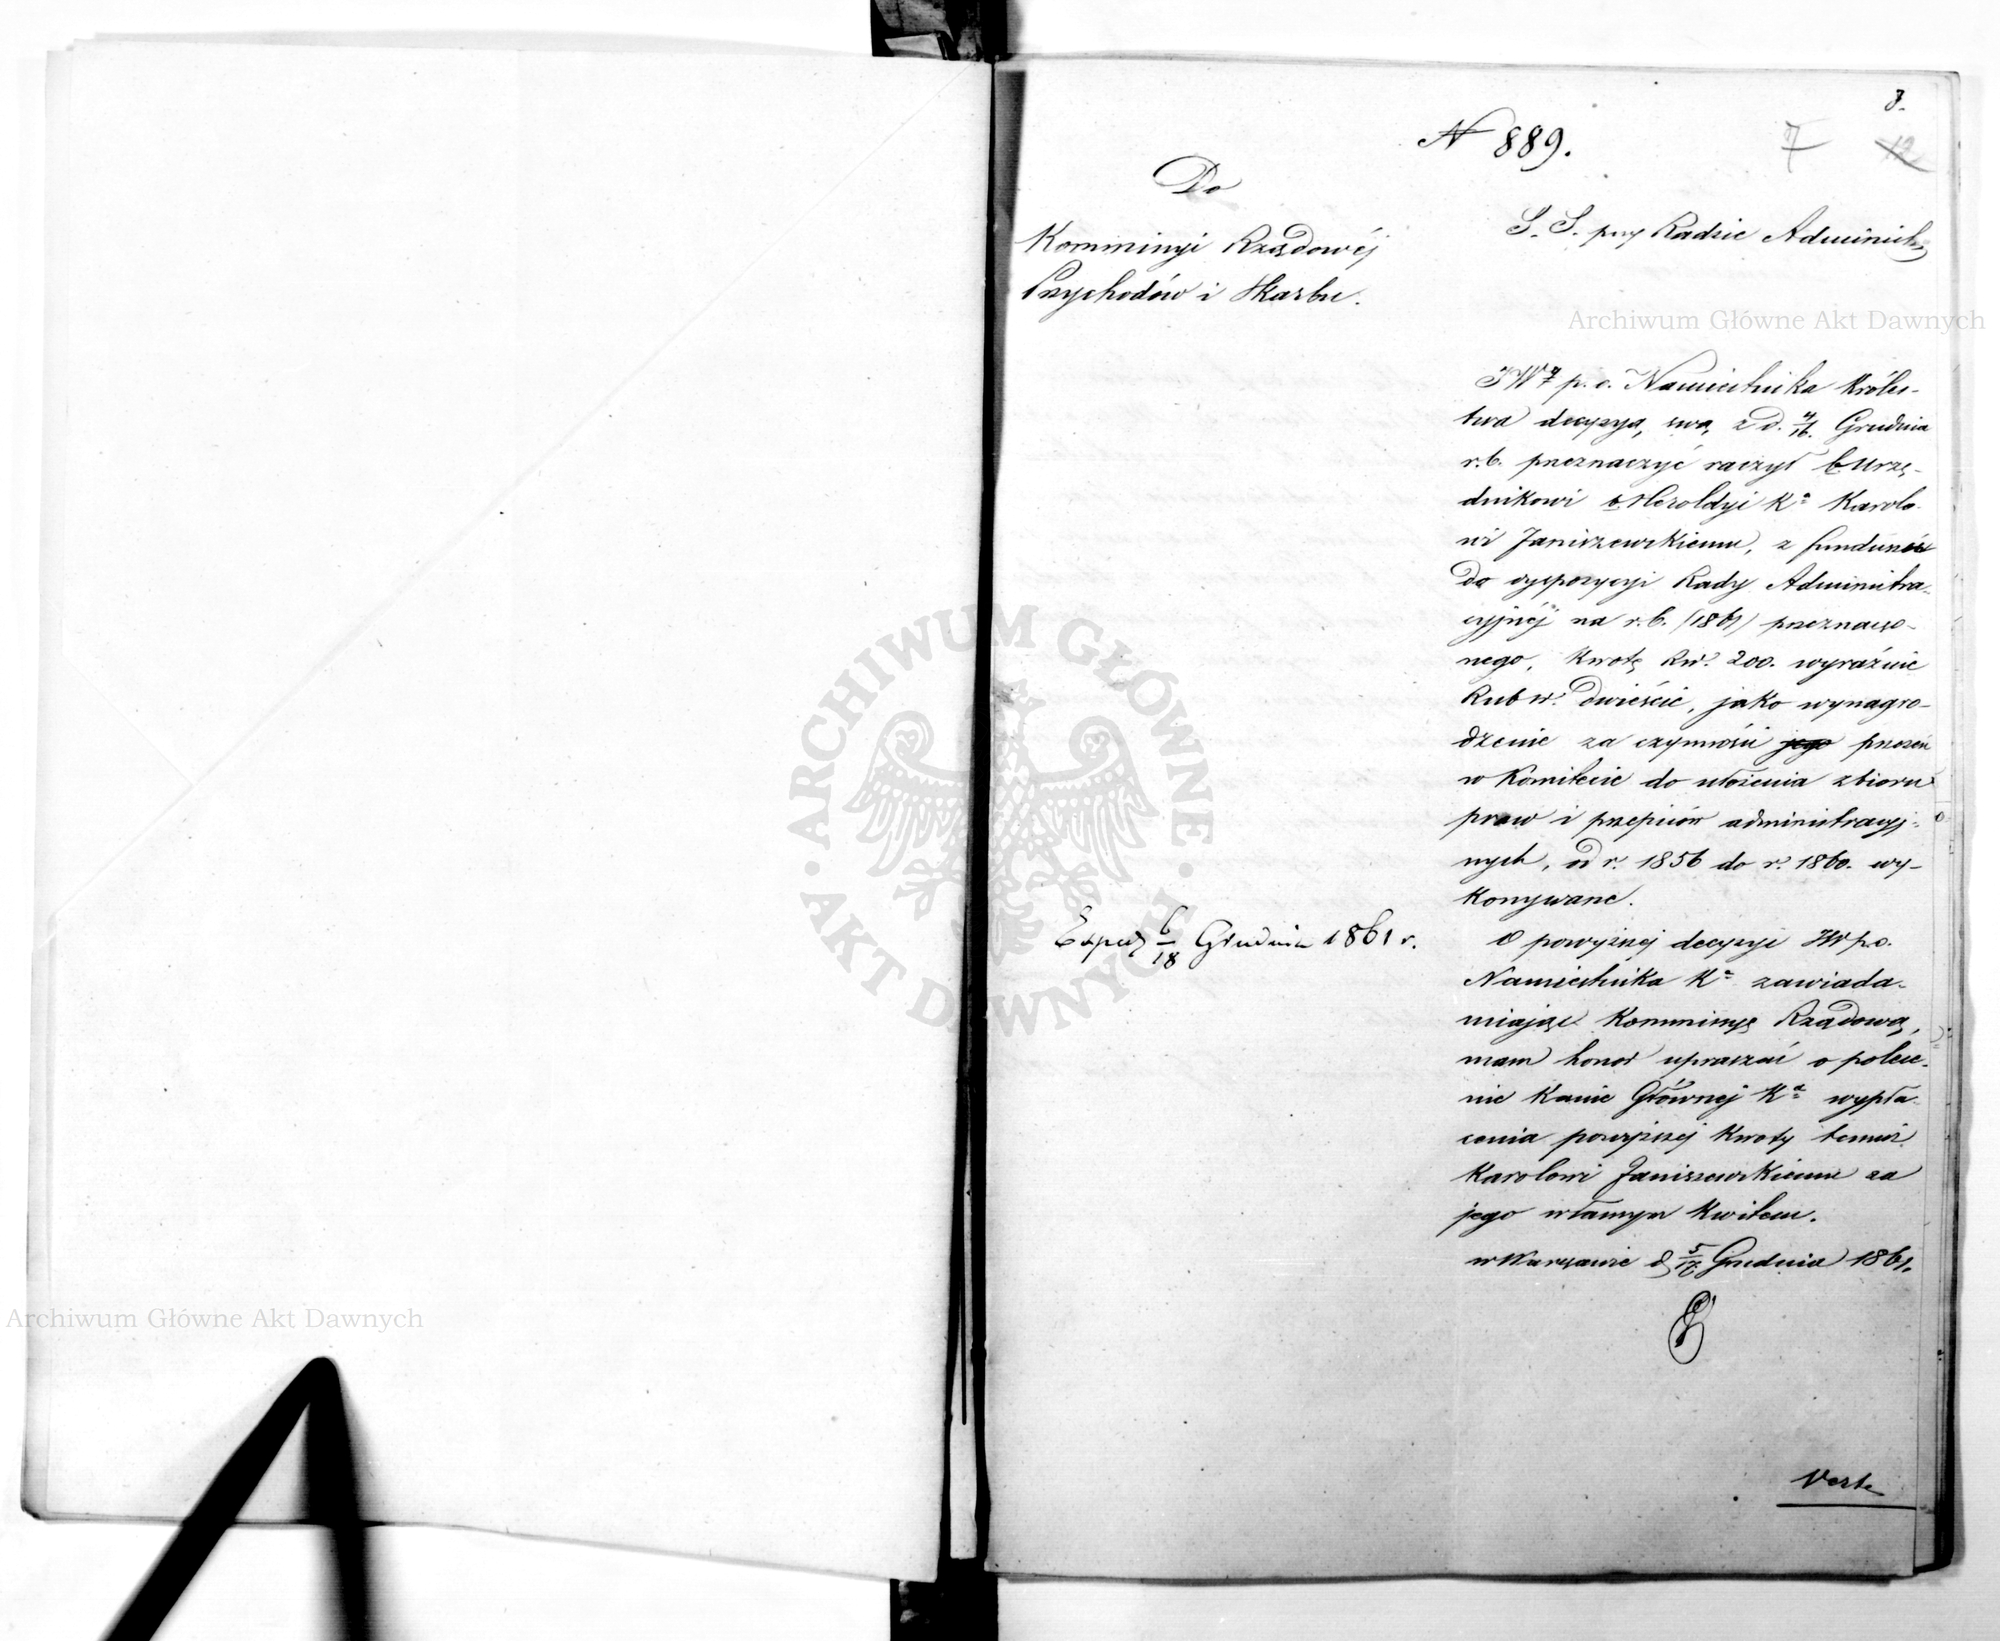 8.
N 889.
7
12
Do
Kommissyi Rządowéj
Przychodów i Skarbu.
S. S. przy Radzie Administr
JW p. o. Namiestnika Króles-
twa decyzyą swą z d. 4/16. Grudnia
r. b. przeznaczyć raczył Urzę-
dnikowi b. Heroldyi K. Karolo-
wi Janiszewskiemu, z funduszu
do dyspozycyi Rady Administra-
cyjnéj na r. b. (1861) przeznaczo-
nego, kwotę Rsr. 200. wyraźnie
Rubsr. dwieście, jako wynagro-
dzenie za czynności jego przezeń
w Komitecie do ułożenia zbioru
praw i przepisów administracyj-
nych, od r. 1856 do r. 1860. wy-
konywane.
O powyższej decyzyi JW p.o.
Namiestnika K. zawiada-
miając Kommissyę Rządową,
mam honor upraszać o polece-
nie Kassie Głównej K. wypła-
cenia powyższej kwoty temuż
Karolowi Janiszewskiemu za
jego własnym kwitem.
w Warszawie d. 5/17 Grudnia 1861.
Exped 6/18 Grudnia 1861 r.
Verte
Archiwum Główne Akt Dawnych
Archiwum Główne Akt Dawnych
ARCHIWUM GŁÓWNE · AKT DAWNYCH ·